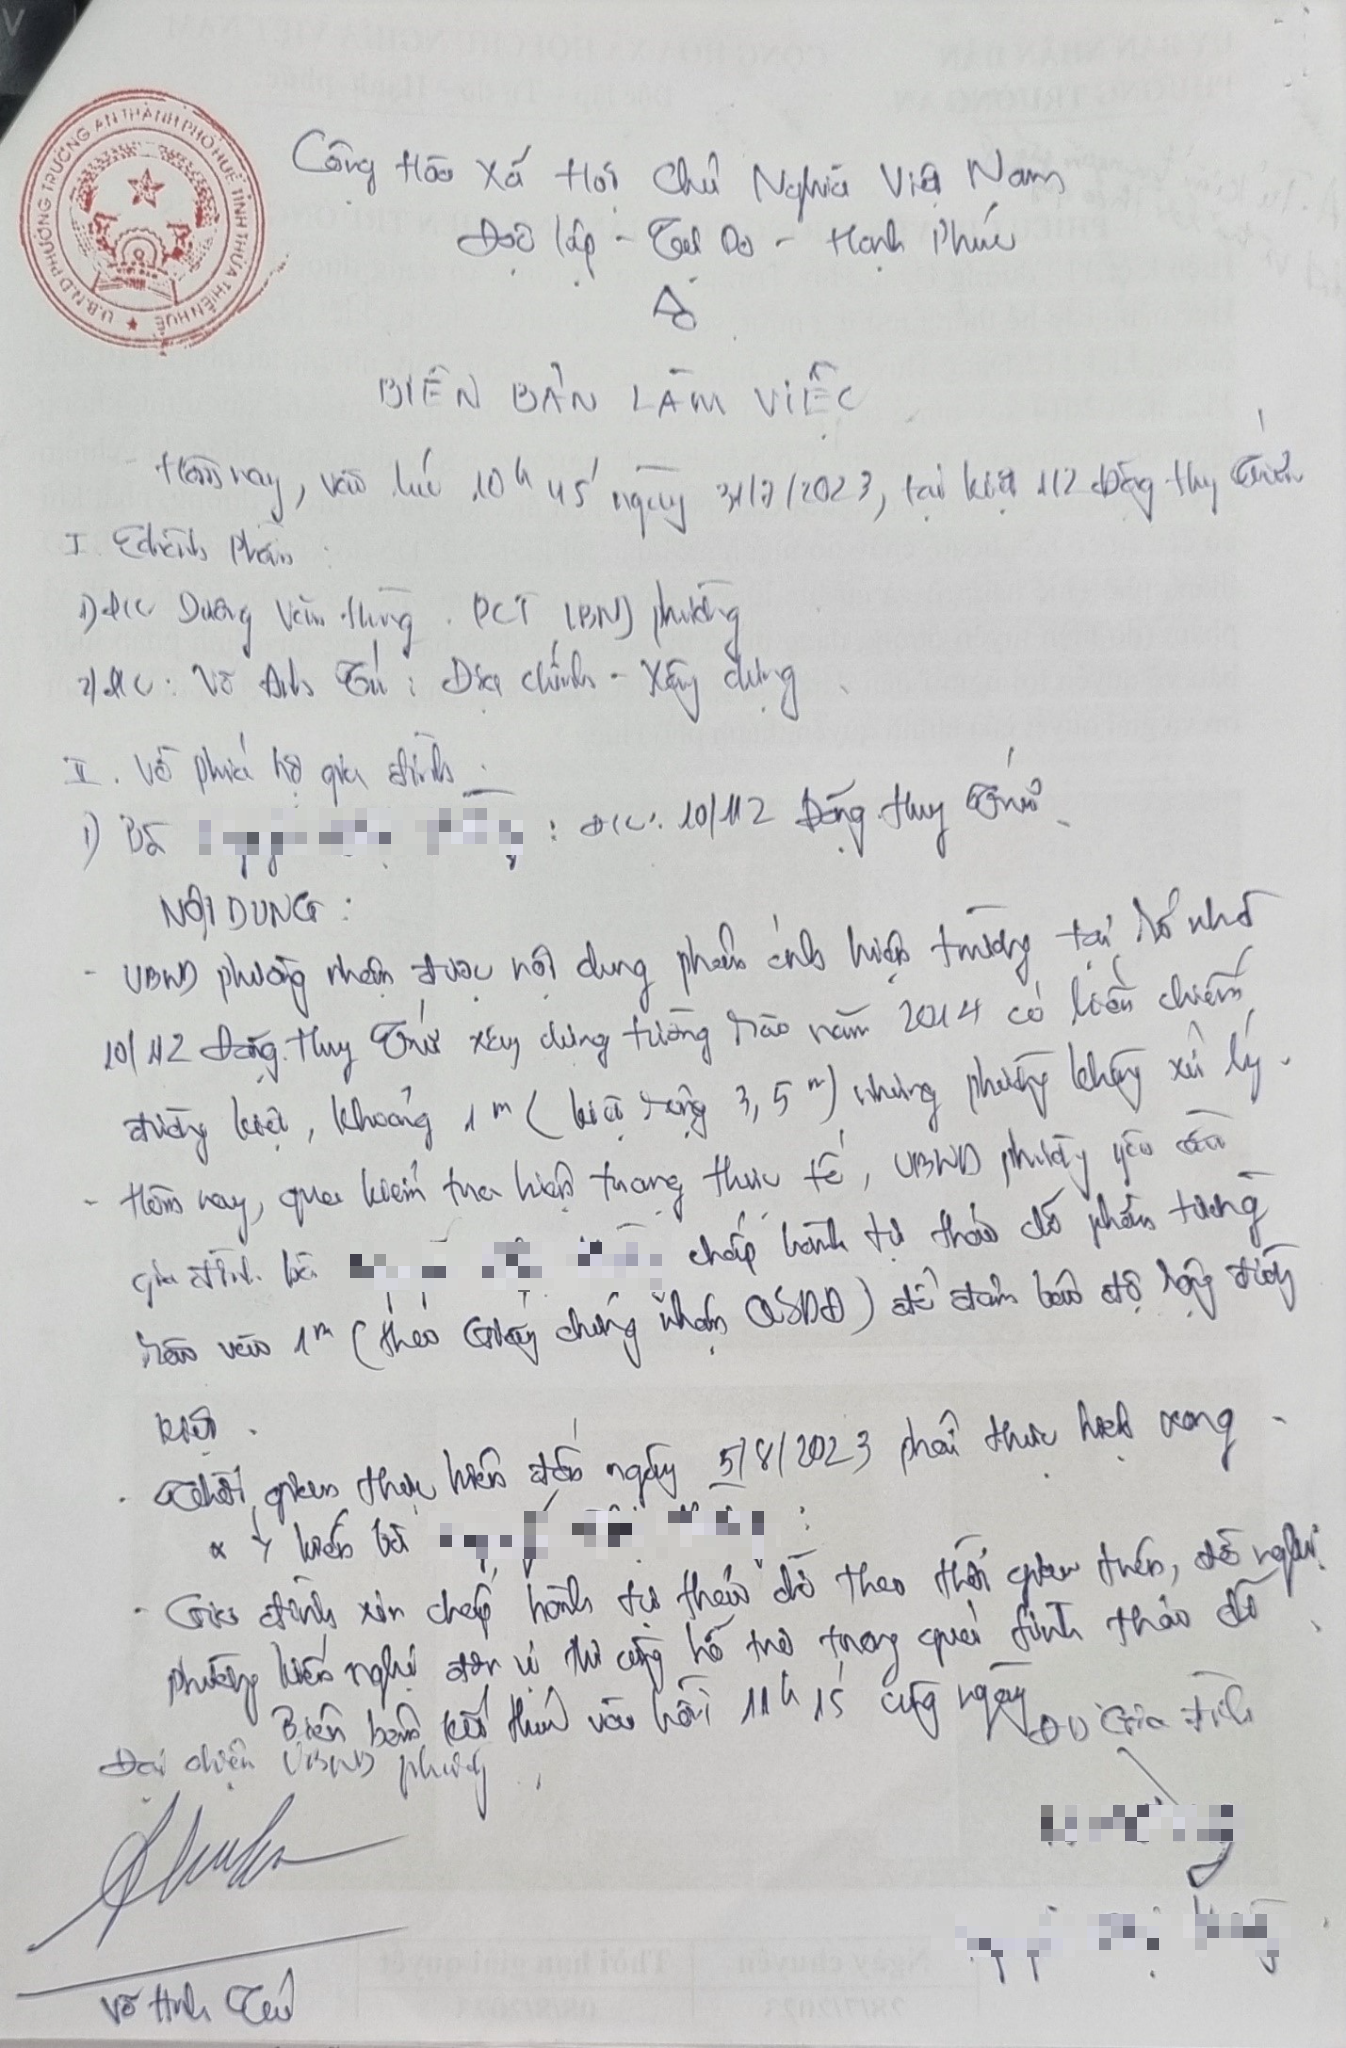 U.B.N.D PHƯỜNG TRƯỜNG AN THÀNH PHỐ HUẾ TỈNH THỪA THIÊN HUẾ
Cộng Hòa Xã Hội Chủ Nghĩa Việt Nam
Độc lập - Tự Do - Hạnh Phúc
BIÊN BẢN LÀM VIỆC
Hôm nay, vào lúc 10h45 ngày 31/7/2023, tại kiệt 112 Đặng Huy Trứ
I Thành Phần:
1) Đ/c Dương Văn Hùng. PCT UBND phường
2) Đ/c: Võ Anh Tú: Địa chính - Xây dựng
II. Về phía hộ gia đình.
1) Bà : Đ/C: 10/112 Đặng Huy Trứ.
NỘI DUNG:
- UBND phường nhận được nội dung phản ánh hiện trường tại số nhà
10/112 Đặng Huy Trứ xây dựng tường rào năm 2014 có lấn chiếm
đường kiệt, khoảng 1m (kiệt rộng 3,5m) nhưng phường không xử lý.
- Hôm nay, qua kiểm tra hiện trạng thực tế, UBND phường yêu cầu
gia đình bà chấp hành tự tháo dỡ phần tường
rào vào 1m (theo Giấy chứng nhận QSDĐ) để đảm bảo độ rộng đường
kiệt.
- Thời gian thực hiện đến ngày 5/8/2023 phải thực hiện xong.
* Ý kiến bà :
- Gia đình xin chấp hành tự tháo dỡ theo thời gian trên, đề nghị
phường kiến nghị đơn vị thi công hỗ trợ trong quá trình tháo dỡ
Biên bản kết thúc vào hồi 11h15 cùng ngày
Đại diện UBND phường
ĐD Gia đình
Võ Anh Tú
Ngày chuyển
Thời hạn giải quyết
28/7/2023
08/8/2023